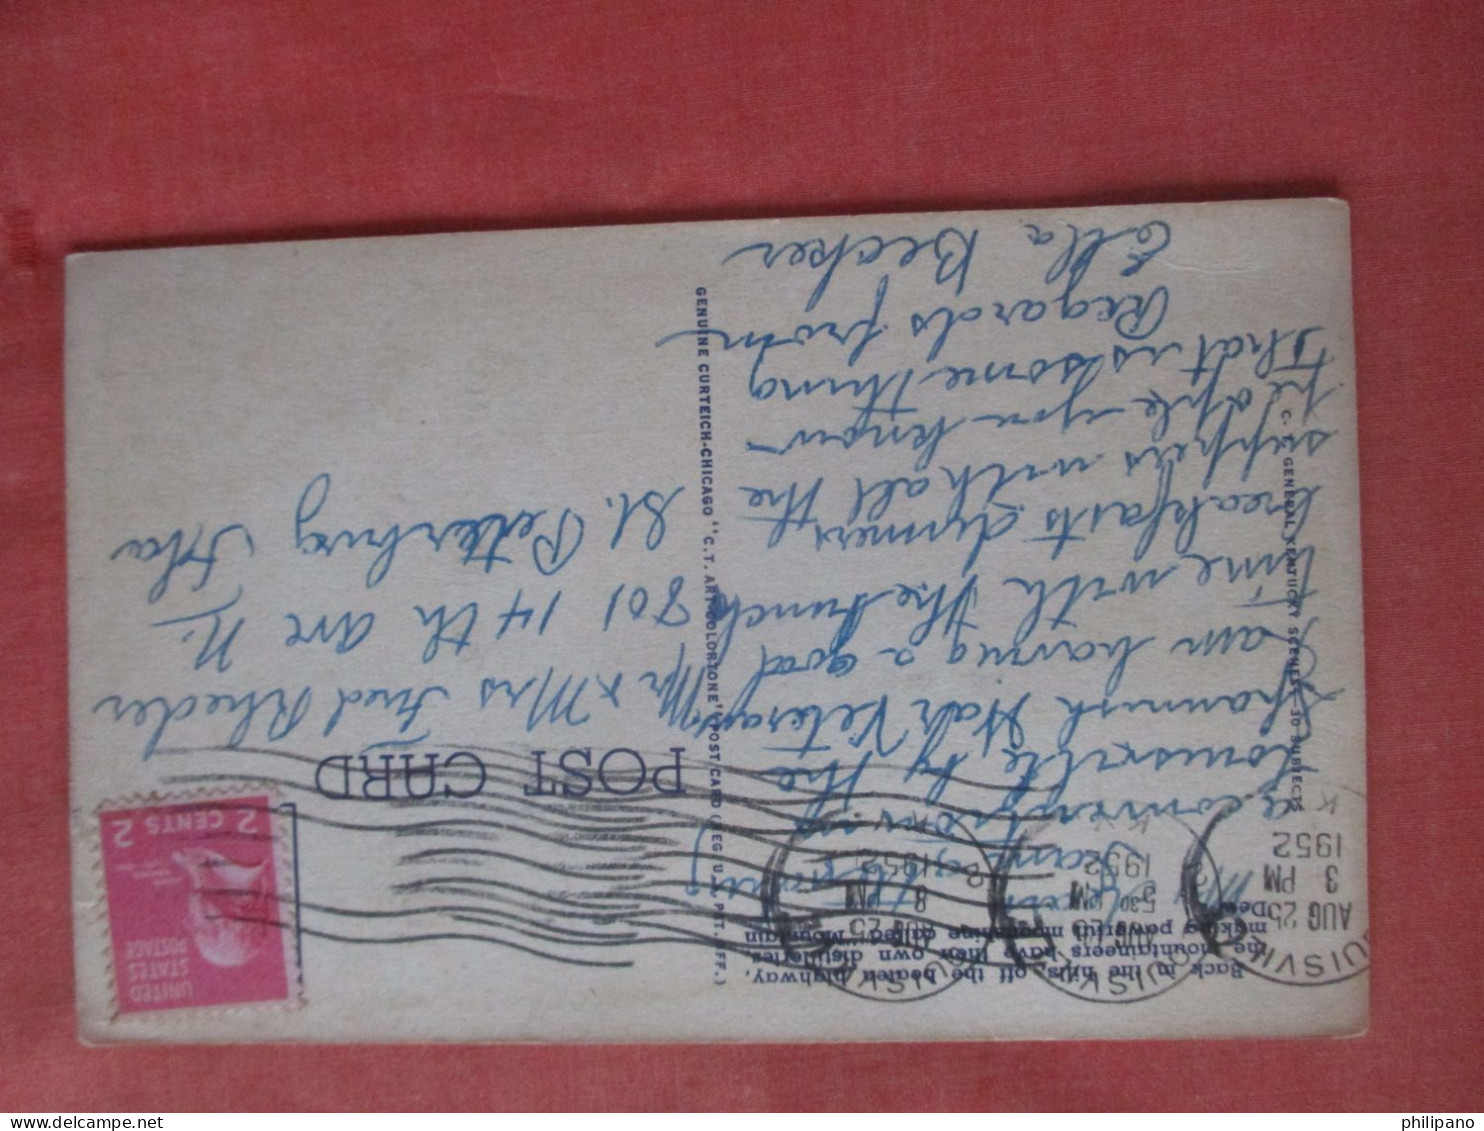 Back in the hills, off the beaten highway,
the mountaineers have their own distilleries
making powerful moonshine called "Mountain
Dew."
a convention in
Louisville by the
Spannish War Veterans
I am having a good
time with the bunch
breakfasts dinners the
suppers with all the
people you know
that is something
Regards from
Ella Becker
C. T. GENERAL KENTUCKY SCENES—30 SUBJECTS
GENUINE CURTEICH-CHICAGO "C. T. ART-COLORTONE" POST CARD (REG. U. S. PAT. OFF.)
POST CARD
UNITED
STATES
POSTAGE
2 CENTS 2
LOUISVILLE
AUG 25
3 PM
1952
KY.
AUG 25
530 PM
1952
KY.
AUG 25
8 PM
1952
KY.
Mr & Mrs Fred Rheder
801 14 th ave N.
St. Peterburg
Fla
philipano